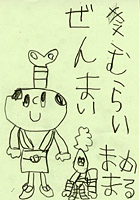 ぜんまい
ざむらい
まめ
まる